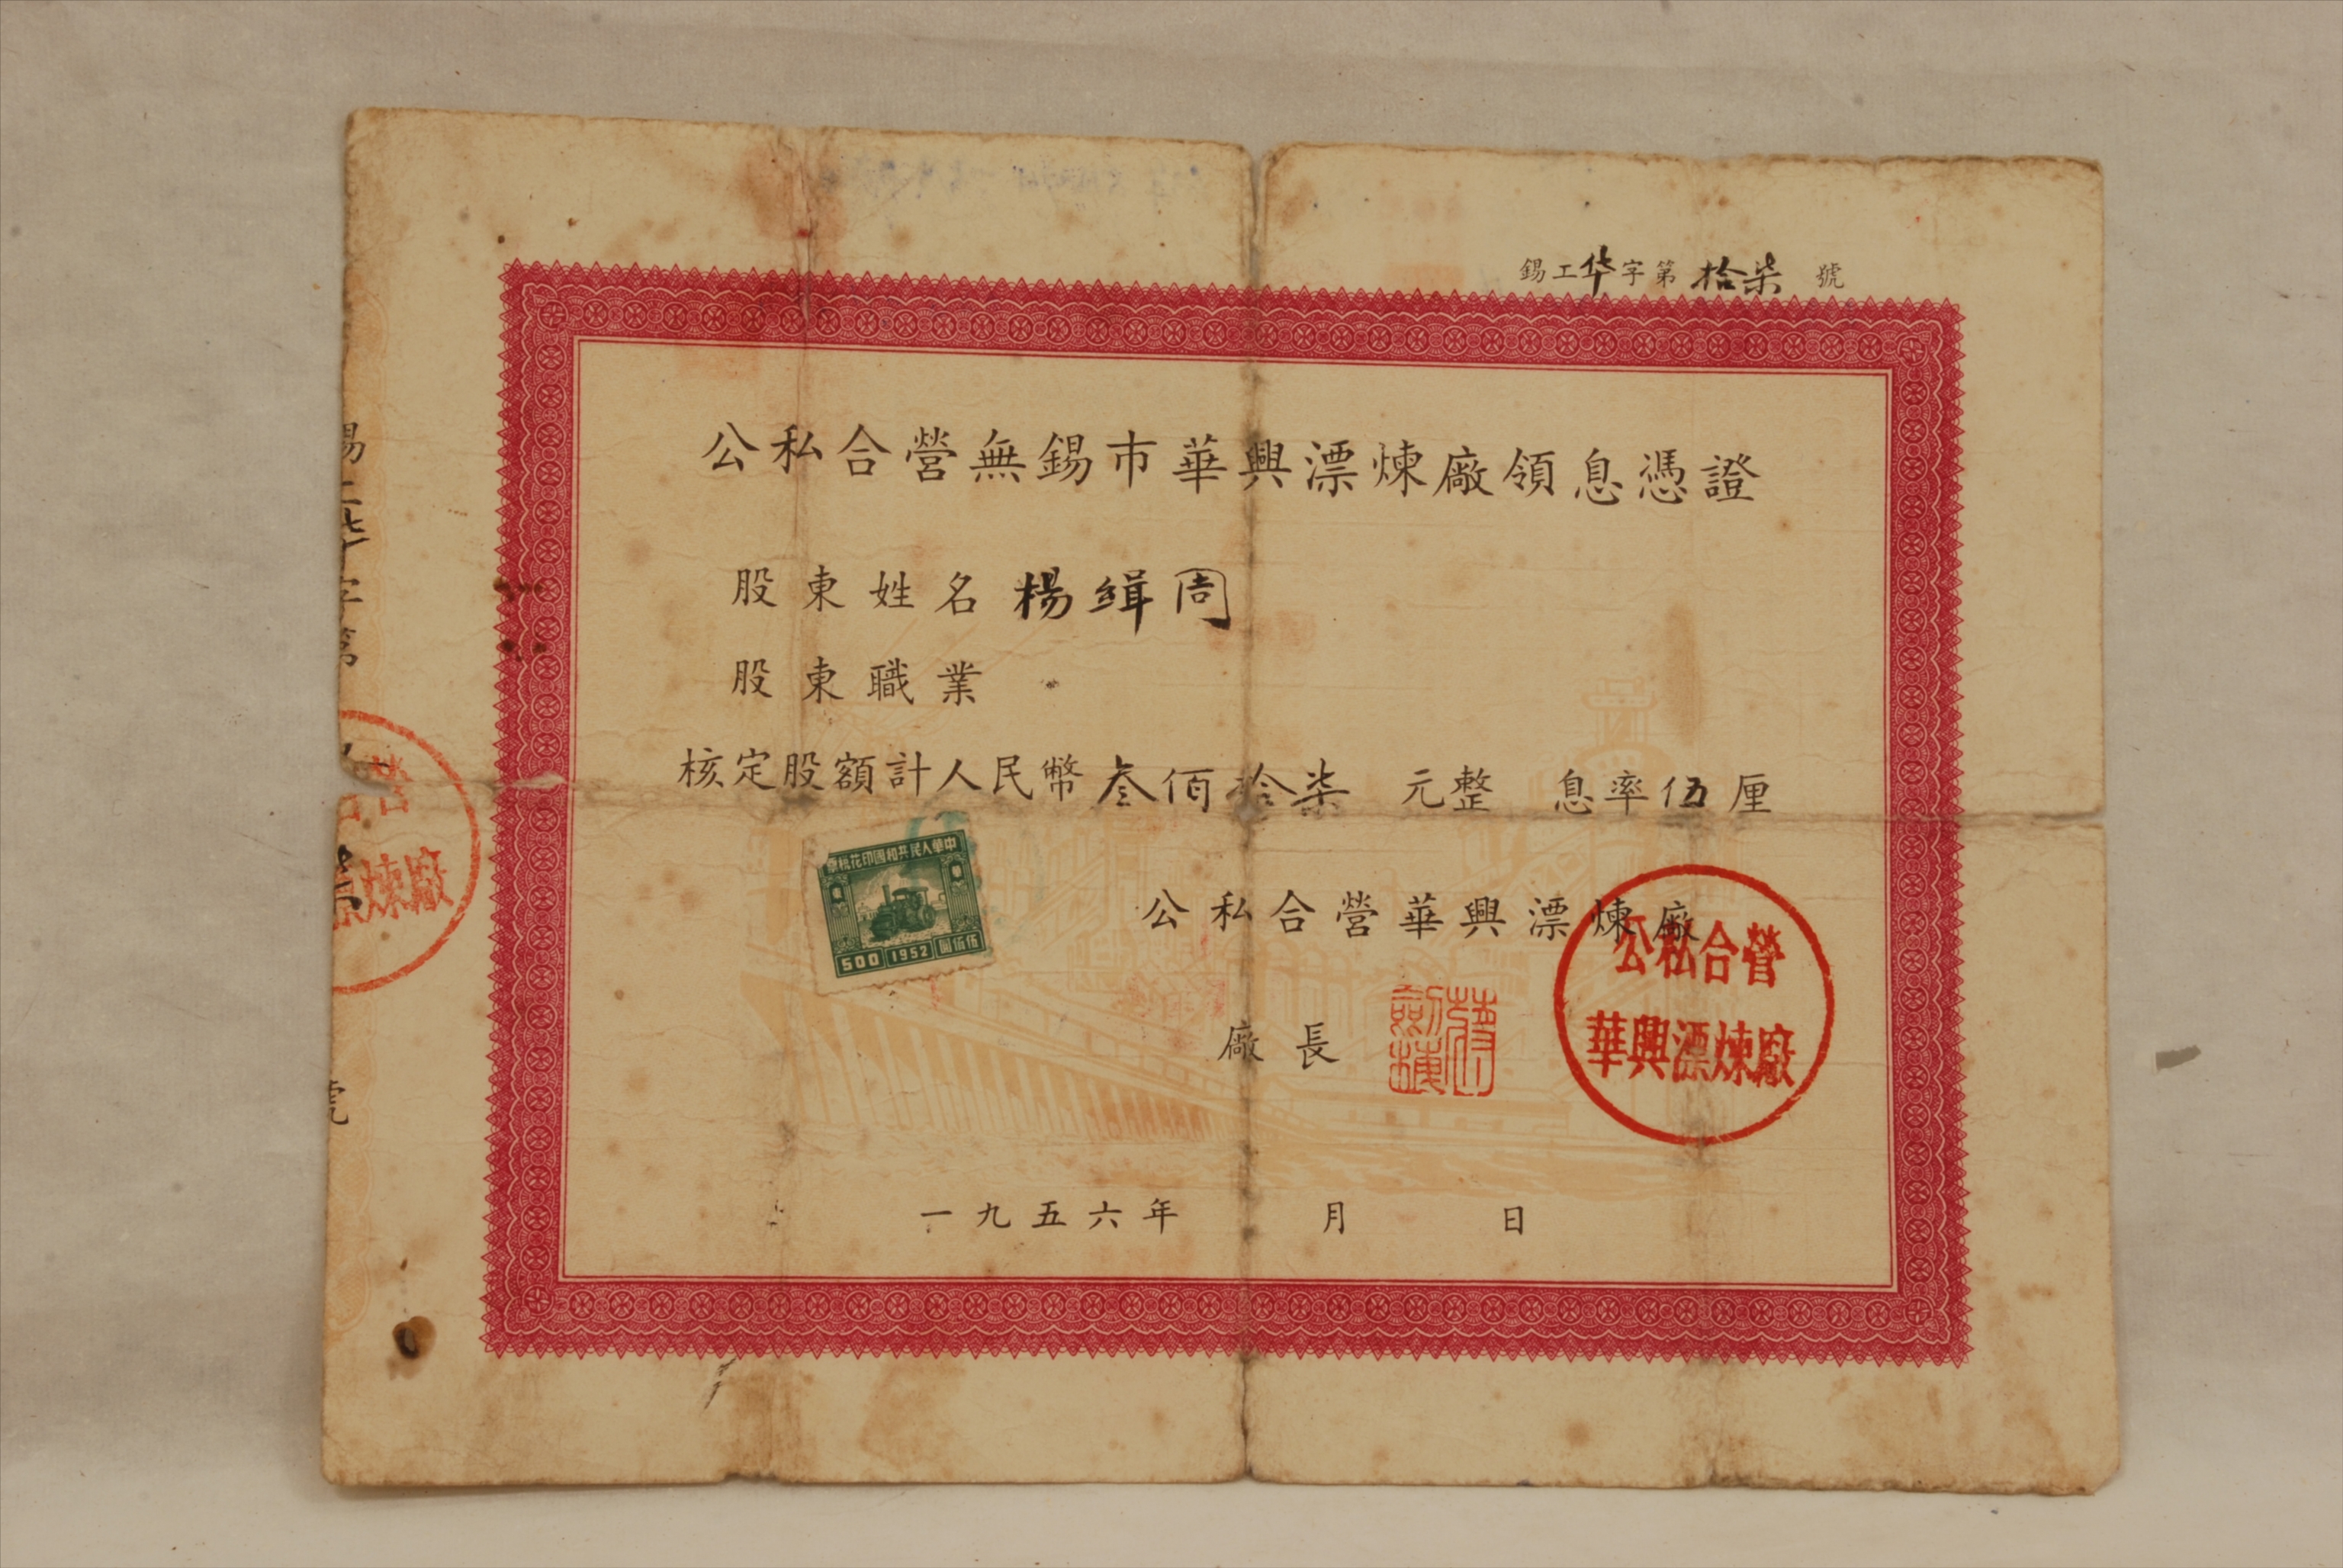 錫工华字第拾柒 號
公私合營無錫市華興漂煉廠領息憑證
股東姓名 楊緝周
股東職業
核定股額計人民幣叁佰拾柒 元整 息率伍厘
中華人民共和國印花稅票
500 1952 伍佰圓
公私合營華興漂煉廠
廠長
公私合營
華興漂煉廠
一九五六年 月 日
錫工华字第
號
合營
漂煉廠